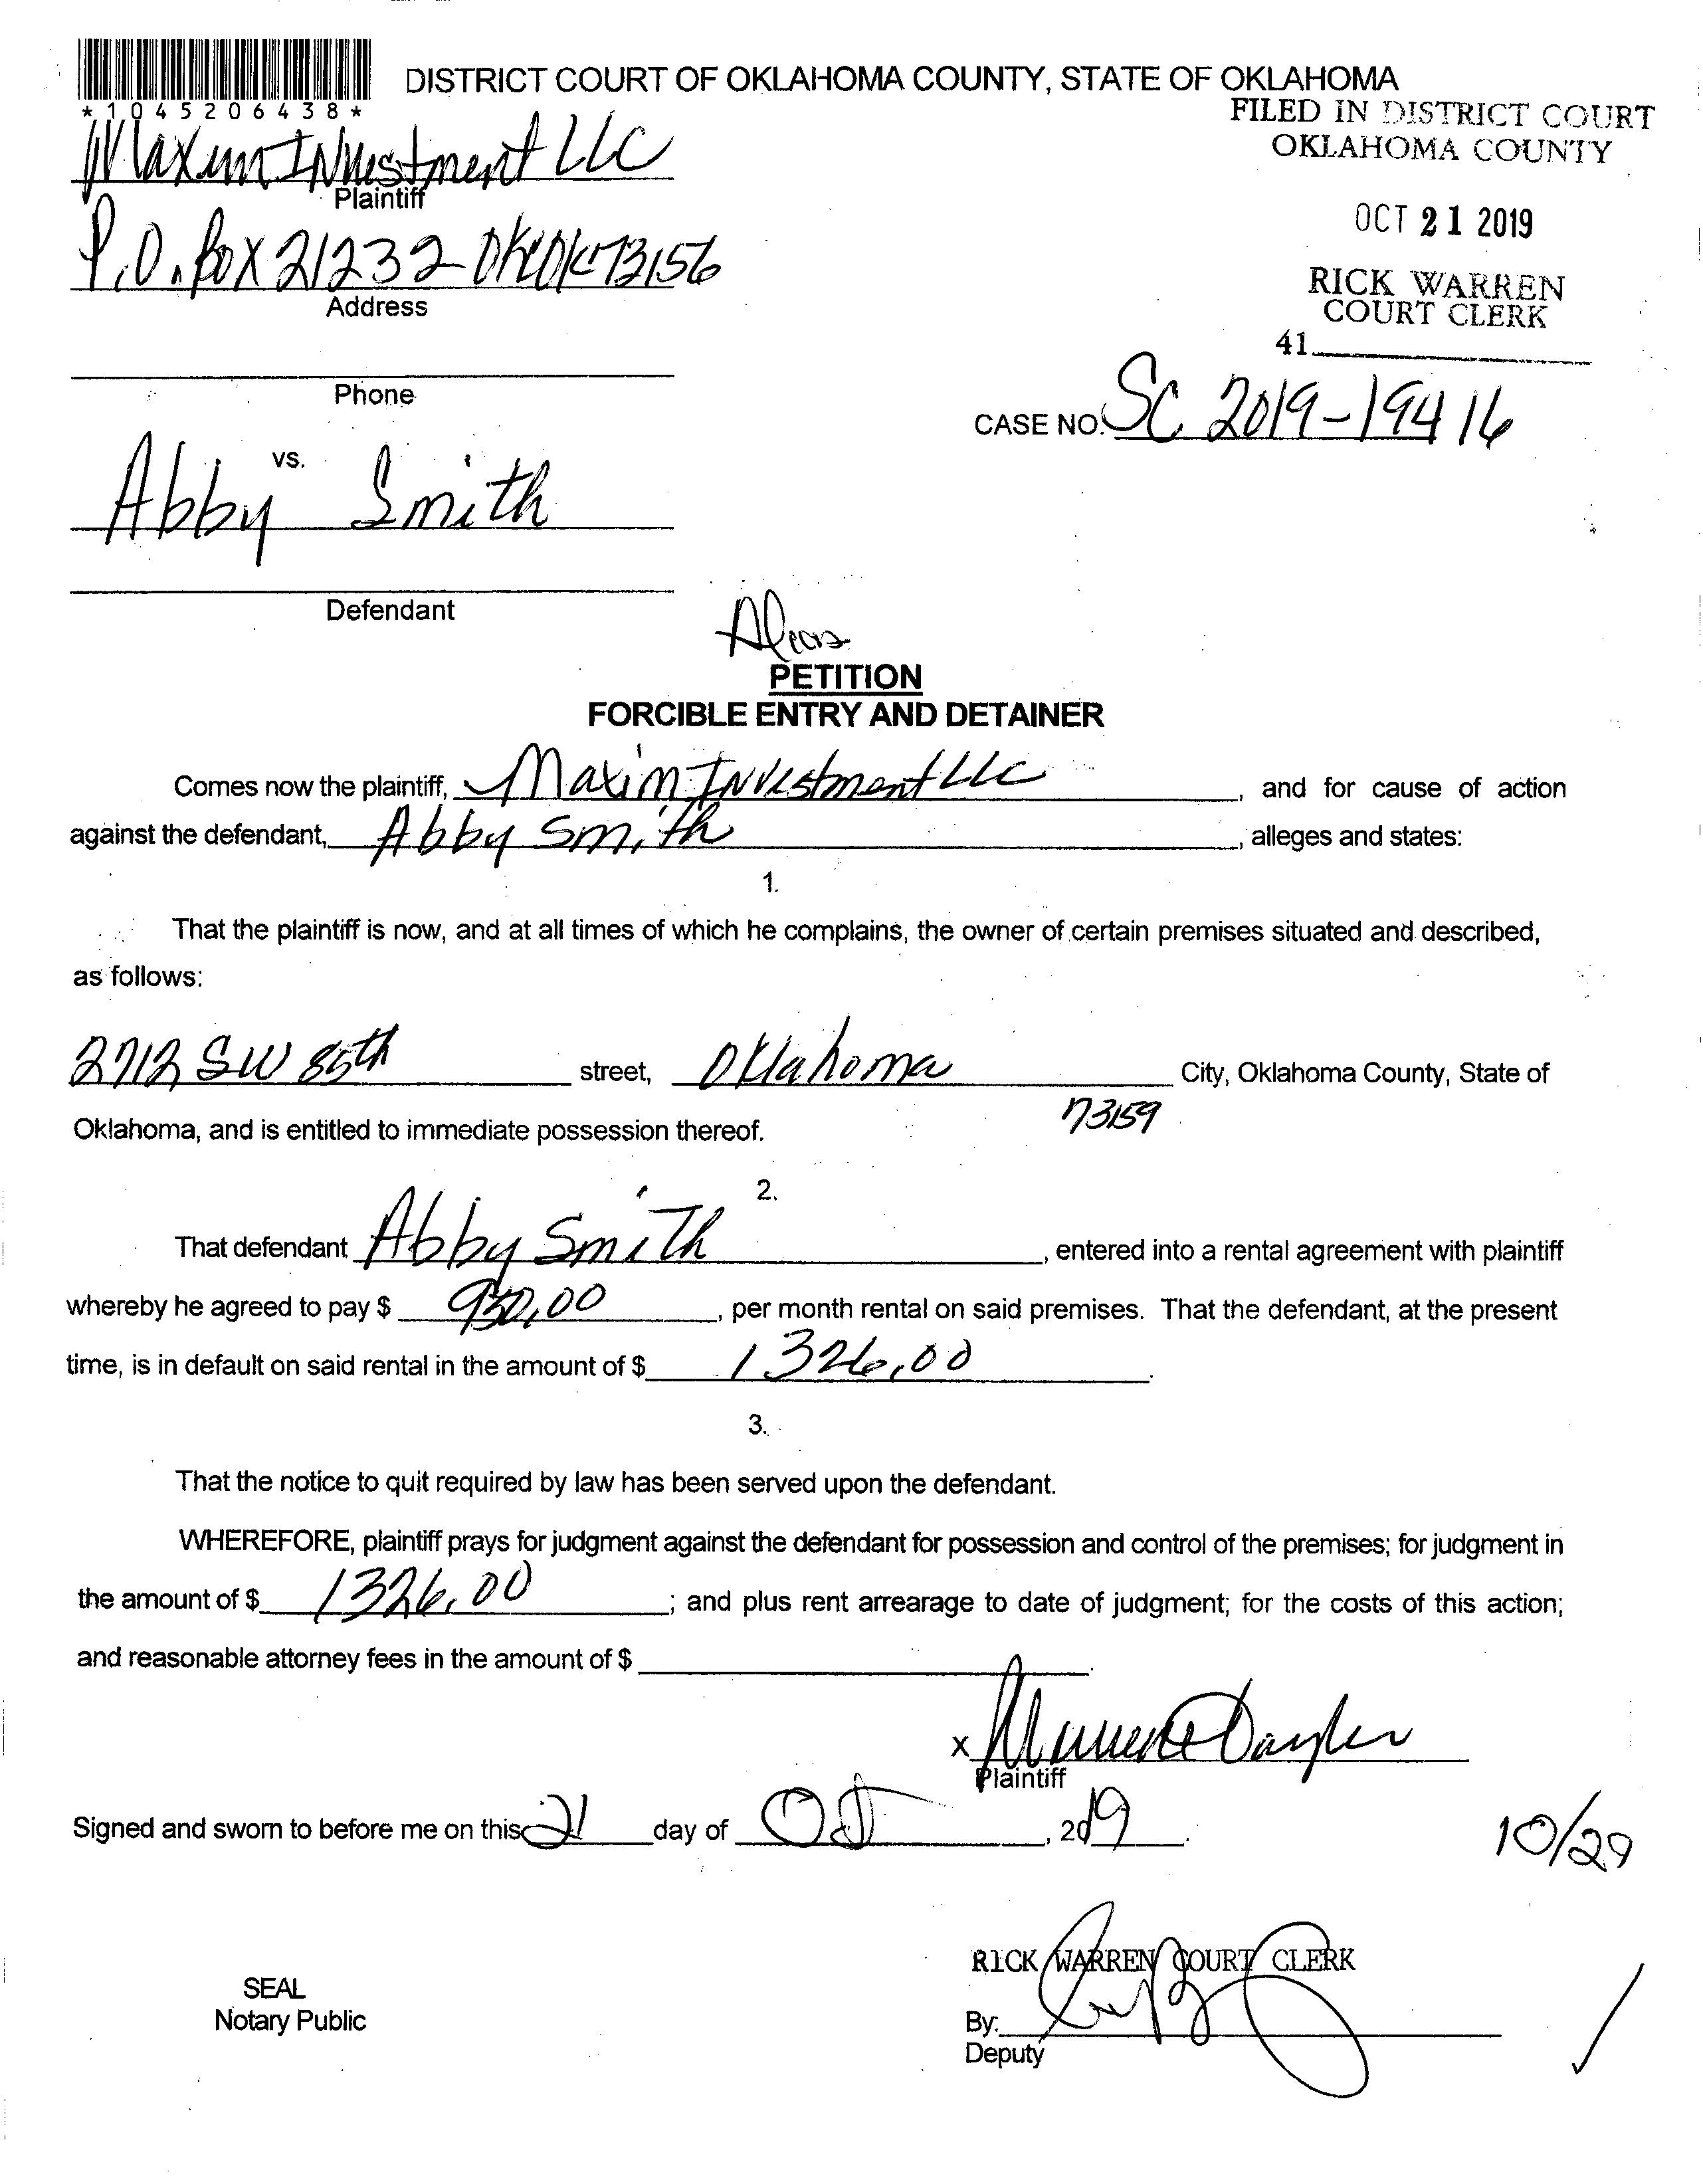 DISTRICT COURT OF OKLAHOMA COUNTY, STATE OF OKLAHOMA
*1045206438*
FILED IN DISTRICT COURT
OKLAHOMA COUNTY
Maxim Investment LLC
Plaintiff
OCT 21 2019
P.O. Box 21232 OKC OK 73156
Address
RICK WARREN
COURT CLERK
41
Phone
CASE NO. SC 2019-19416
vs.
Abby Smith
Defendant
PETITION
FORCIBLE ENTRY AND DETAINER
Comes now the plaintiff, Maxim Investment LLC, and for cause of action
against the defendant, Abby Smith, alleges and states:
1.
That the plaintiff is now, and at all times of which he complains, the owner of certain premises situated and described,
as follows:
2712 SW 85th street, Oklahoma City, Oklahoma County, State of
73159
Oklahoma, and is entitled to immediate possession thereof.
2.
That defendant Abby Smith, entered into a rental agreement with plaintiff
whereby he agreed to pay $ 930.00, per month rental on said premises. That the defendant, at the present
time, is in default on said rental in the amount of $ 1326.00.
3.
That the notice to quit required by law has been served upon the defendant.
WHEREFORE, plaintiff prays for judgment against the defendant for possession and control of the premises; for judgment in
the amount of $ 1326.00; and plus rent arrearage to date of judgment; for the costs of this action;
and reasonable attorney fees in the amount of $ .
x
Plaintiff
Signed and sworn to before me on this 21 day of Oct, 2019.
10/29
RICK WARREN COURT CLERK
SEAL
Notary Public
By:
Deputy